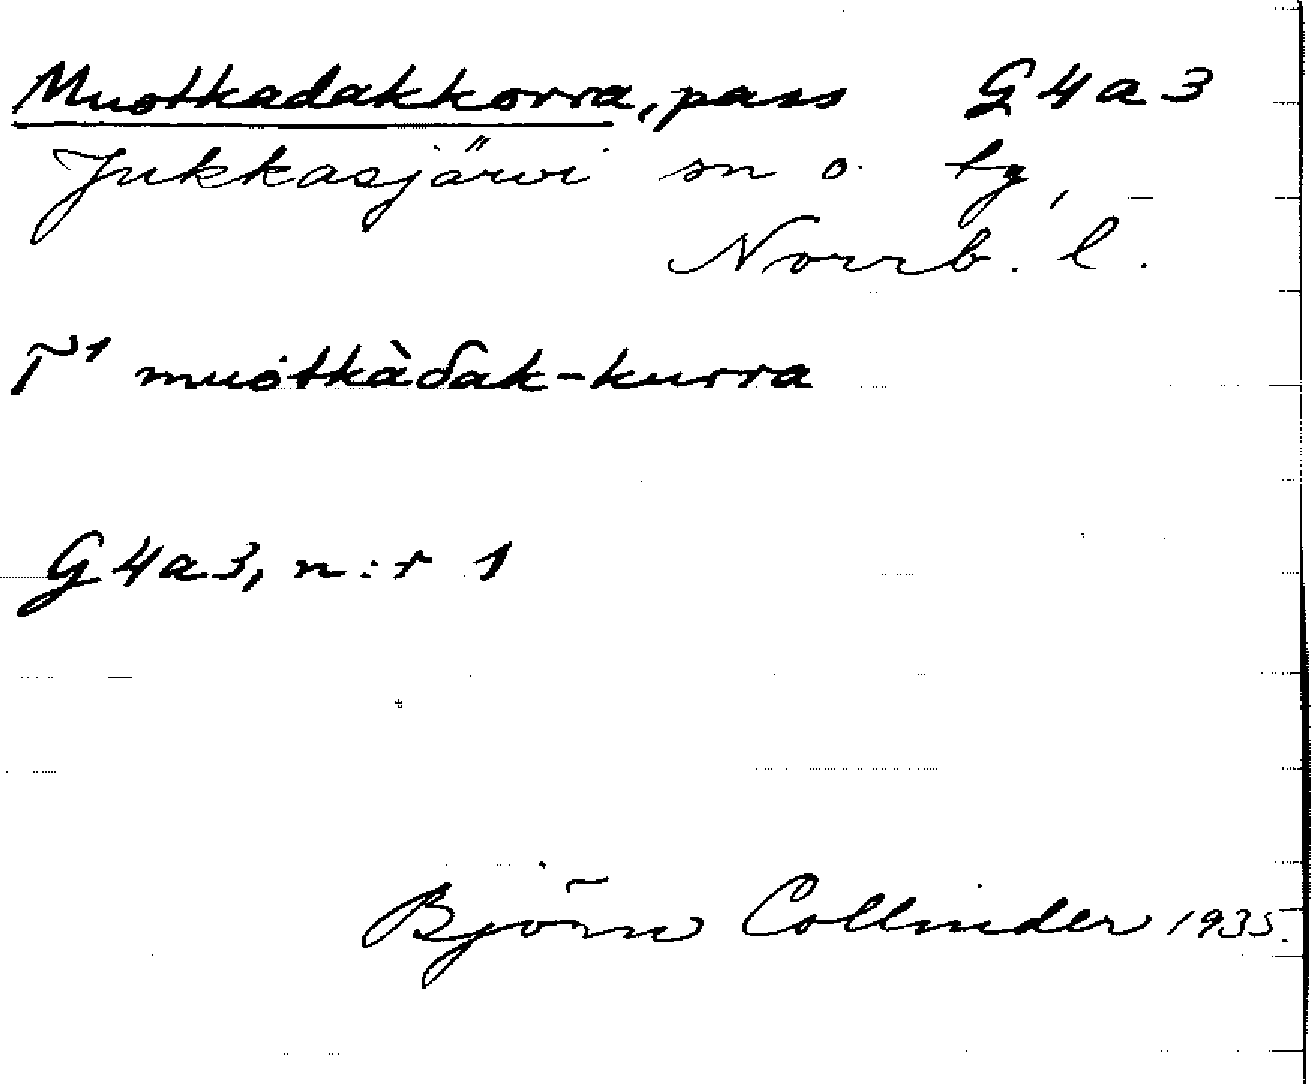 Muotkadakkorra, pass G4a3
Jukkasjärvi sn o. tg,
Norrb. l.
T¹ muotkàδak-kurra
G4a3, n:r 1
Björn Collinder 1935.